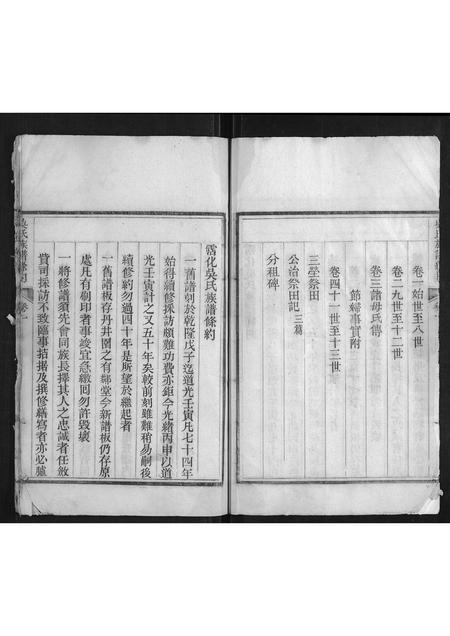 卷一始世至八世
卷二九世至十二世
卷三諸母氏傳
節婦事實附
卷四十一世至十三世
三塋祭田
公治祭田記三篇
分祖碑
吳氏族譜條約
一舊譜刱於乾隆戊子迄道光壬寅凡七十四年
始得續修採訪頗難功費亦鉅今光緒丙申以道
光壬寅計之又五十年矣較前刻雖難稍易嗣後
續修約勿過四十年是所望於繼起者
一舊譜板存丹井園之有鄰堂今新譜板仍存原
處凡有刷印者事竣宜急繳回勿許毀壞
一將修譜須先會同族長擇其人之忠誠者任斂
貲司採訪不致臨事拮据及撰修繕寫者亦必臚
吳氏族譜條約
卷一